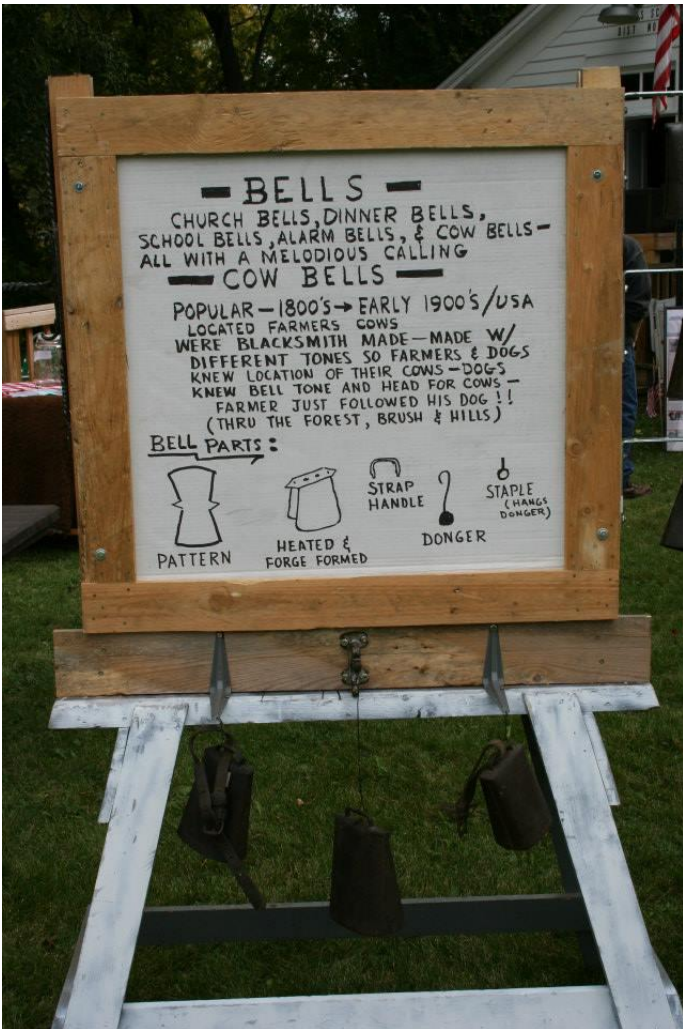 — BELLS —
CHURCH BELLS, DINNER BELLS,
SCHOOL BELLS, ALARM BELLS, & COW BELLS—
ALL WITH A MELODIOUS CALLING
— COW BELLS —
POPULAR—1800'S→EARLY 1900'S/USA
LOCATED FARMERS COWS
WERE BLACKSMITH MADE—MADE W/
DIFFERENT TONES SO FARMERS & DOGS
KNEW LOCATION OF THEIR COWS—DOGS
KNEW BELL TONE AND HEAD FOR COWS—
FARMER JUST FOLLOWED HIS DOG!!
(THRU THE FOREST, BRUSH & HILLS)
BELL PARTS:
PATTERN
HEATED &
FORGE FORMED
STRAP
HANDLE
DONGER
STAPLE
(HANGS
DONGER)